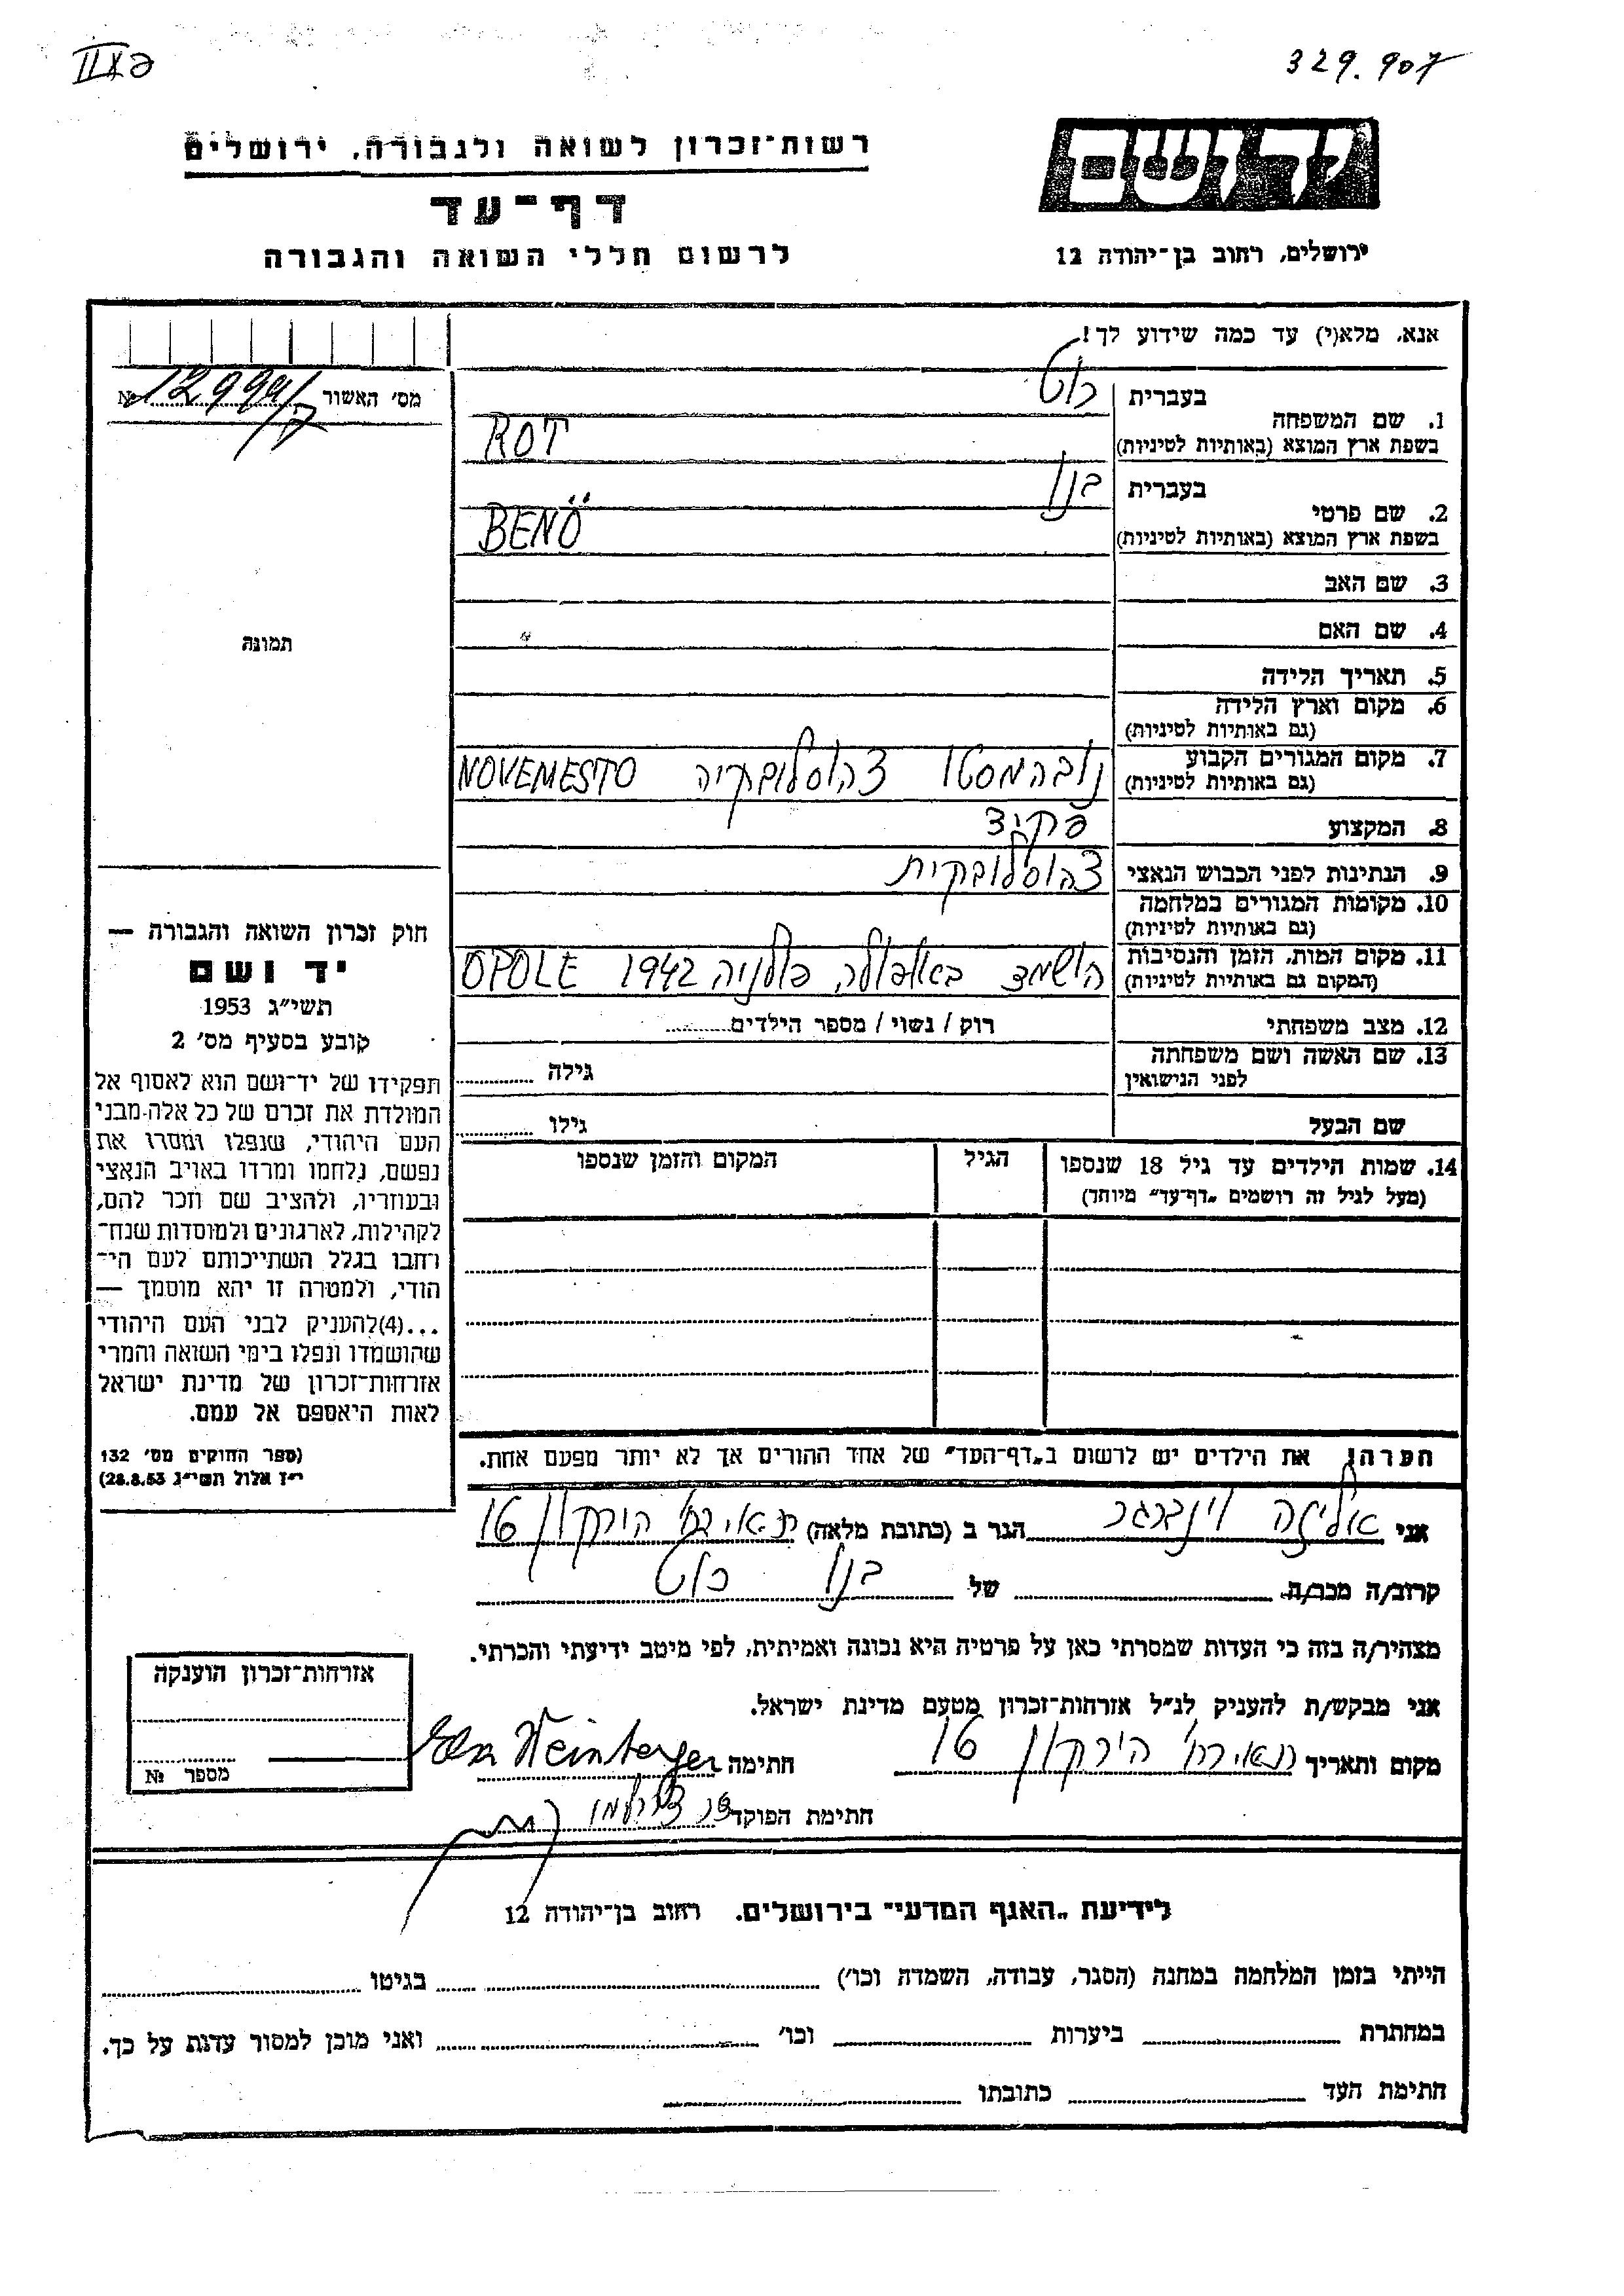 329.907
יד ושם
רשות־זכרון לשואה ולגבורה, ירושלים
דף־עד
לרשום חללי השואה והגבורה
ירושלים, רחוב בן־יהודה 12
אנא, מלא(י) עד כמה שידוע לך!
מס' האשור № 12999/ק
1. שם המשפחה
בעברית רוט
בשפת ארץ המוצא (באותיות לטיניות) ROT
2. שם פרטי
בעברית בנו
בשפת ארץ המוצא (באותיות לטיניות) BENÖ
3. שם האב
4. שם האם
5. תאריך הלידה
6. מקום וארץ הלידה
(גם באותיות לטיניות)
7. מקום המגורים הקבוע
(גם באותיות לטיניות)
נובהמסטו צהוסלובקיה NOVEMESTO
8. המקצוע פקיד
9. הנתינות לפני הכבוש הנאצי צהוסלובקית
10. מקומות המגורים במלחמה
(גם באותיות לטיניות)
11. מקום המות, הזמן והנסיבות
(המקום גם באותיות לטיניות)
הושמד באופולה פולניה 1942 OPOLE
12. מצב משפחתי רוק / נשוי / מספר הילדים
13. שם האשה ושם משפחתה
לפני הנישואין
גילה
שם הבעל גילו
14. שמות הילדים עד גיל 18 שנספו
(מעל לגיל זה רושמים „דף־עד” מיוחד)
הגיל
המקום והזמן שנספו
תמונה
חוק זכרון השואה והגבורה —
יד ושם
תשי"ג 1953
קובע בסעיף מס' 2
תפקידו של יד־ושם הוא לאסוף אל
המולדת את זכרם של כל אלה מבני
העם היהודי, שנפלו ומסרו את
נפשם, נלחמו ומרדו באויב הנאצי
ובעוזריו, ולהציב שם וזכר להם,
לקהילות, לארגונים ולמוסדות שנח־
רחבו בגלל השתייכותם לעם הי־
הודי, ולמטרה זו יהא מוסמך —
...(4)להעניק לבני העם היהודי
שהושמדו ונפלו בימי השואה והמרי
אזרחות־זכרון של מדינת ישראל
לאות היאספם אל עמם.
(ספר החוקים מס' 132
י"ז אלול תשי"ג 28.8.53)
הערה! את הילדים יש לרשום ב„דף־העד” של אחד ההורים אך לא יותר מפעם אחת.
אני אליזה וינברגר הגר ב (כתובת מלאה) הירקון 16
קרוב/ה מכר/ה של בנו רוט
מצהיר/ה בזה כי העדות שמסרתי כאן על פרטיה היא נכונה ואמיתית, לפי מיטב ידיעתי והכרתי.
אני מבקש/ת להעניק לנ"ל אזרחות־זכרון מטעם מדינת ישראל.
מקום ותאריך הירקון 16 חתימה Weinberger
חתימת הפוקד
אזרחות־זכרון הוענקה
מספר №
לידיעת „האגף המדעי” בירושלים. רחוב בן־יהודה 12
הייתי בזמן המלחמה במחנה (הסגר, עבודה, השמדה וכו') בגיטו
במחתרת ביערות וכו' ואני מוכן למסור עדות על כך.
חתימת העד כתובתו